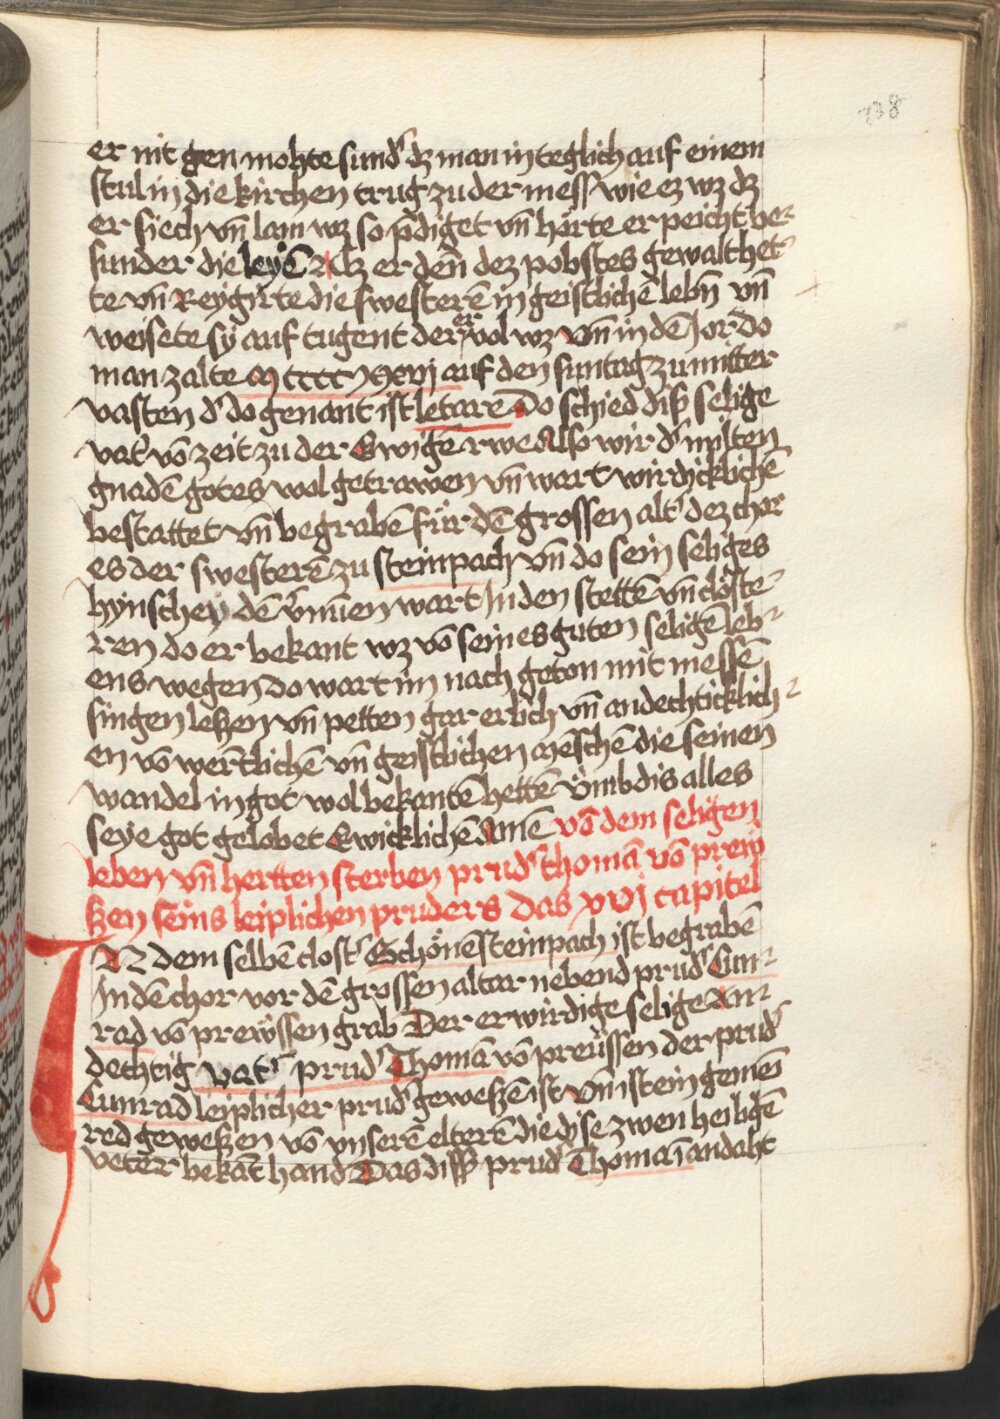 738
er nit gen mohte sund' dz man in teglich auf einem
stul in die kirchen trug zu der mess wie ez wz dz
er siech vn̄ lam wz so p̄diget vn̄ hörte er peicht be-
sunder die leyē Alz er den̄ dez pobstes gewalt het-
te vn̄ Reygirte die swesterē in geistlichē lebn̄ vn̄
weisete sy auf tugent der er vol wz vn̄ in dē Jor do
man zalte M cccc xxvj auf den suntag zu mitter
vasten d' do genant ist letare Do schied diß selige
vat' vō zeit zu der Ewigē rwe Also wir d' milten
gnadē gotes wol getrawen vn̄ wart wirdicklichē
bestattet vn̄ begrabē für dē grossen alt' dez chor
es der swesterē zu steinpach vn̄ do sein seliges
hynscheydē v'nūen wart In den stettē vn̄ clöste-
ren do er bekant wz vō seines guten seligē leb-
ens wegen do wart im nach geton mit messē
singen leßen vn̄ petten gar erlich vn̄ andechticklich-
en vō wertlichē vn̄ geistlichen mēschē die seinen
wandel in got wol bekantē hettē Vmb dis alles
seye got gelobet Ewicklichē Amē vō dem seligen
leben vn̄ hertten sterben prud' thomā vō prew
ßen seins leiplichen pruders das xvj capitel
IN dem selbē clost' Schönēsteinpach ist begrabē
In dē chor vor dē grossen altar nebend prud' Cun-
rad vō prewssen grab Der erwirdige selige An-
dechtig vat' prud' Thomā vō preüssen der prud'
Cunrad leiplicher prud' geweßē ist vn̄ ist ein gemei
red geweßen vō vnserē elterē die dise zwen heiligē
veter bekāt hand Das diß prud' Thoman andaht